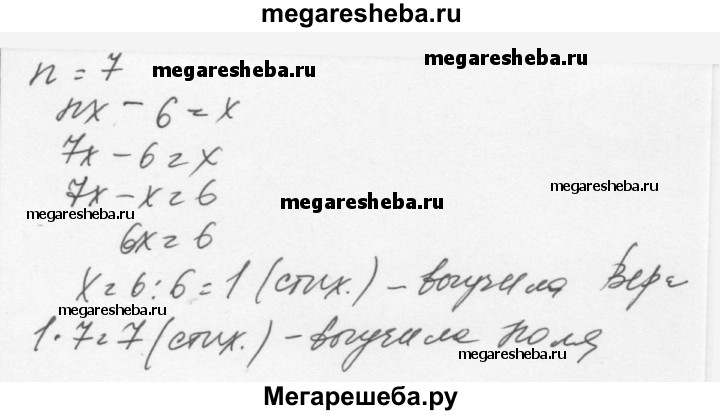 megaresheba.ru
n = 7
megaresheba.ru
megaresheba.ru
nx - 6 = x
7x - 6 = x
7x - x = 6
megaresheba.ru
megaresheba.ru
megaresheba.ru
6x = 6
x = 6 : 6 = 1 (стих.) - выучила Вера
megaresheba.ru
1 · 7 = 7 (стих.) - выучила Поля
megaresheba.ru
Мегарешеба.ру